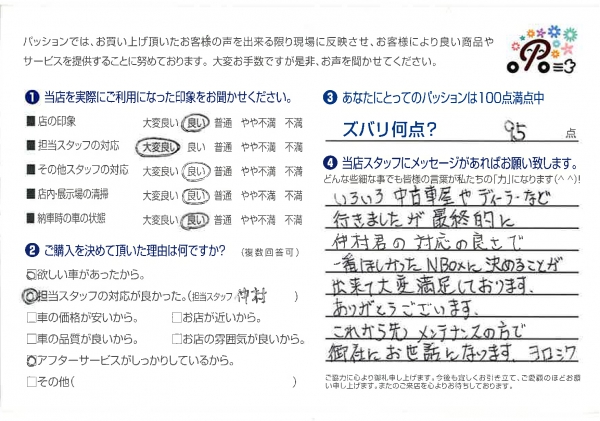 パッションでは、お買い上げ頂いたお客様の声を出来る限り現場に反映させ、お客様により良い商品や
サービスを提供することに努めております。大変お手数ですが是非、お声を聞かせてください。
❶ 当店を実際にご利用になった印象をお聞かせください。
■ 店の印象 大変良い 良い 普通 やや不満 不満
■ 担当スタッフの対応 大変良い 良い 普通 やや不満 不満
■ その他スタッフの対応 大変良い 良い 普通 やや不満 不満
■ 店内・展示場の清掃 大変良い 良い 普通 やや不満 不満
■ 納車時の車の状態 大変良い 良い 普通 やや不満 不満
❷ ご購入を決めて頂いた理由は何ですか? (複数回答可)
□欲しい車があったから。
□担当スタッフの対応が良かった。(担当スタッフ 仲村 )
□車の価格が安いから。 □お店が近いから。
□車の品質が良いから。 □お店の雰囲気が良いから。
□アフターサービスがしっかりしているから。
□その他( )
❸ あなたにとってのパッションは100点満点中
ズバリ何点? 95 点
❹ 当店スタッフにメッセージがあればお願い致します。
どんな些細な事でも皆様の言葉が私たちの「力」になります(^ ^)!
いろいろ 中古車屋や ディーラーなど
行きましたが 最終的に
仲村君の 対応の良さで
一番ほしかった NBoxに決めることが
出来て大変満足しております.
ありがとうございます.
これから先 メンテナンスの方で
御社にお世話になります. ヨロシク
ご協力に心より御礼申し上げます。今後も宜しくお引き立て、ご愛顧のほどお願
い申し上げます。またのご来店を心よりお待ちしております。